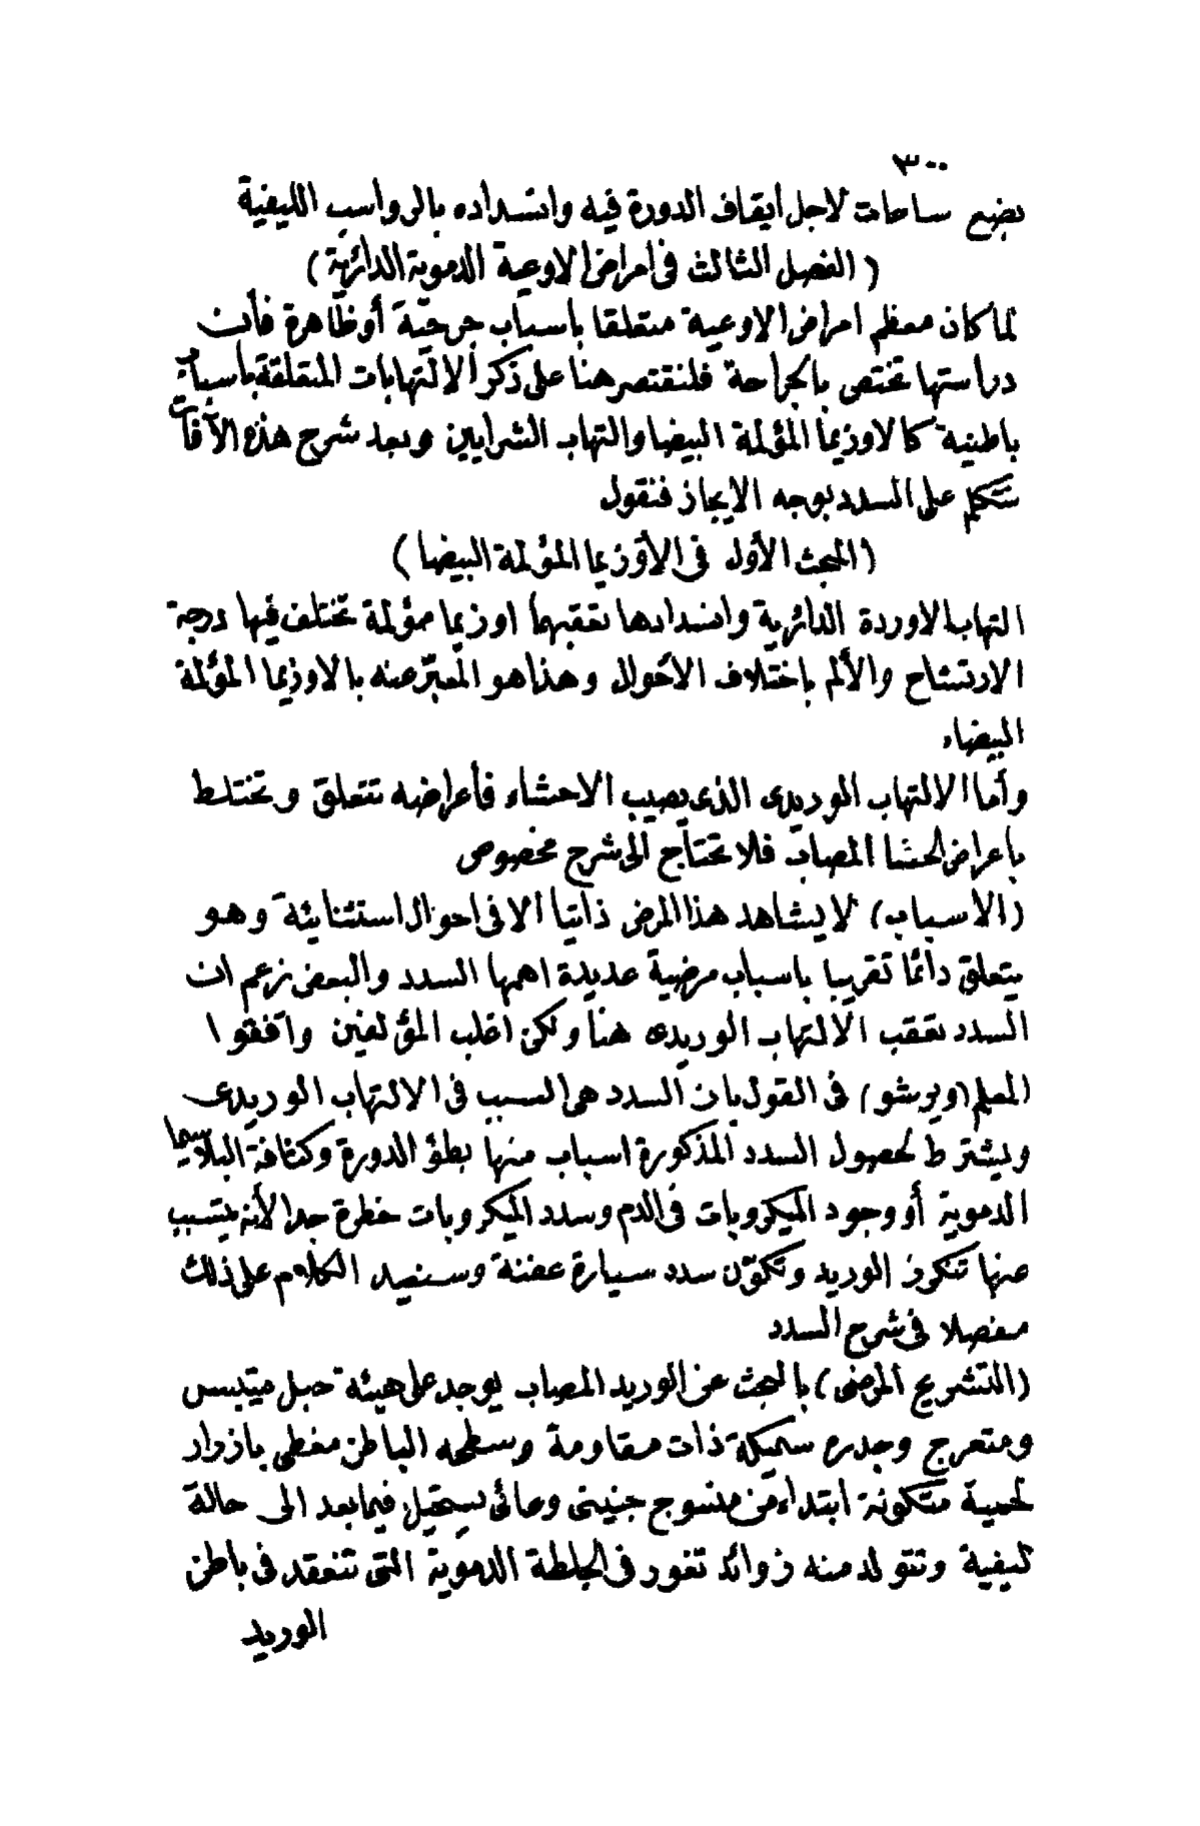 ٣٠٠
بضع ساعات لاجل ايقاف الدورة فيه وانسداده بالرواسب الليفية
(الفصل الثالث فى امراض الاوعية الدموية الدائرية)
لما كان معظم امراض الاوعية متعلقا باسباب جرحية أو ظاهرة فأن
دراستها تختص بالجراحة فلنقتصر هنا على ذكر الالتهابات المتعلقة باسباب
باطنية كالاوزيما المؤلمة البيضا والتهاب الشرايين وبعد شرح هذه الآفات
نتكلم على السدد بوجه الايجاز فنقول
(المبحث الأول فى الأوزيما المؤلمة البيضا)
التهاب الاوردة الدائرية وانسدادها تعقبهما اوزيما مؤلمة تختلف فيها درجة
الارتشاح والألم باختلاف الأحوال وهذا هو المعبر عنه بالاوزيما المؤلمة
البيضاء
وأما الالتهاب الوريدى الذى يصيب الاحشاء فأعراضه تتعلق وتختلط
باعراض الحشا المصاب فلا تحتاج الى شرح مخصوص
(الأسباب) لا يشاهد هذا المرض ذاتيا الا فى احوال استثنائية وهو
يتعلق دائما تقريبا باسباب مرضية عديدة اهمها السدد والبعض زعم ان
السدد تعقب الالتهاب الوريدى هنا ولكن اغلب المؤلفين وافقوا
المعلم (ويرشو) فى القول بان السدد هى السبب فى الالتهاب الوريدى
ويشترط لحصول السدد المذكورة اسباب منها بطؤ الدورة وكثافة البلاسيما
الدموية أو وجود الميكروبات فى الدم وسدد الميكروبات خطرة جدا لأنه يتسبب
عنها تنكرز الوريد وتكوّن سدد سيارة عفنة وسنعيد الكلام على ذلك
مفصلا فى شرح السدد
(التشريح المرضى) بالبحث عن الوريد المصاب يوجد على هيئة حبل متيبس
ومتعرج وجدره سميكة ذات مقاومة وسطحه الباطن مغطى بازرار
لحمية متكونة ابتداء من منسوج جنينى وعائى يستحيل فيما بعد الى حالة
ليفية وتتولد منه زوائد تغور فى الجلطة الدموية التى تنعقد فى باطن
الوريد